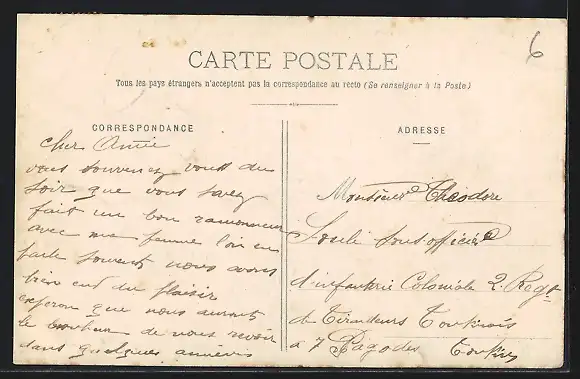 6
CARTE POSTALE
Tous les pays étrangers n'acceptent pas la correspondance au recto (Se renseigner à la Poste)
CORRESPONDANCE
ADRESSE
cher Amie
vous souvenez vous du
soir que vous
fait un bon
avec me femme l'on en
parle souvent nous avons
bien eut du plaisir
esperon que nous auront
le bonheur de vous revoir
dans quelques années
Monsieur Théodore
sous officier
d'infanterie Coloniale 2. Regt
de Tirailleurs Tonkinois
a 7 Pagodes Tonkin